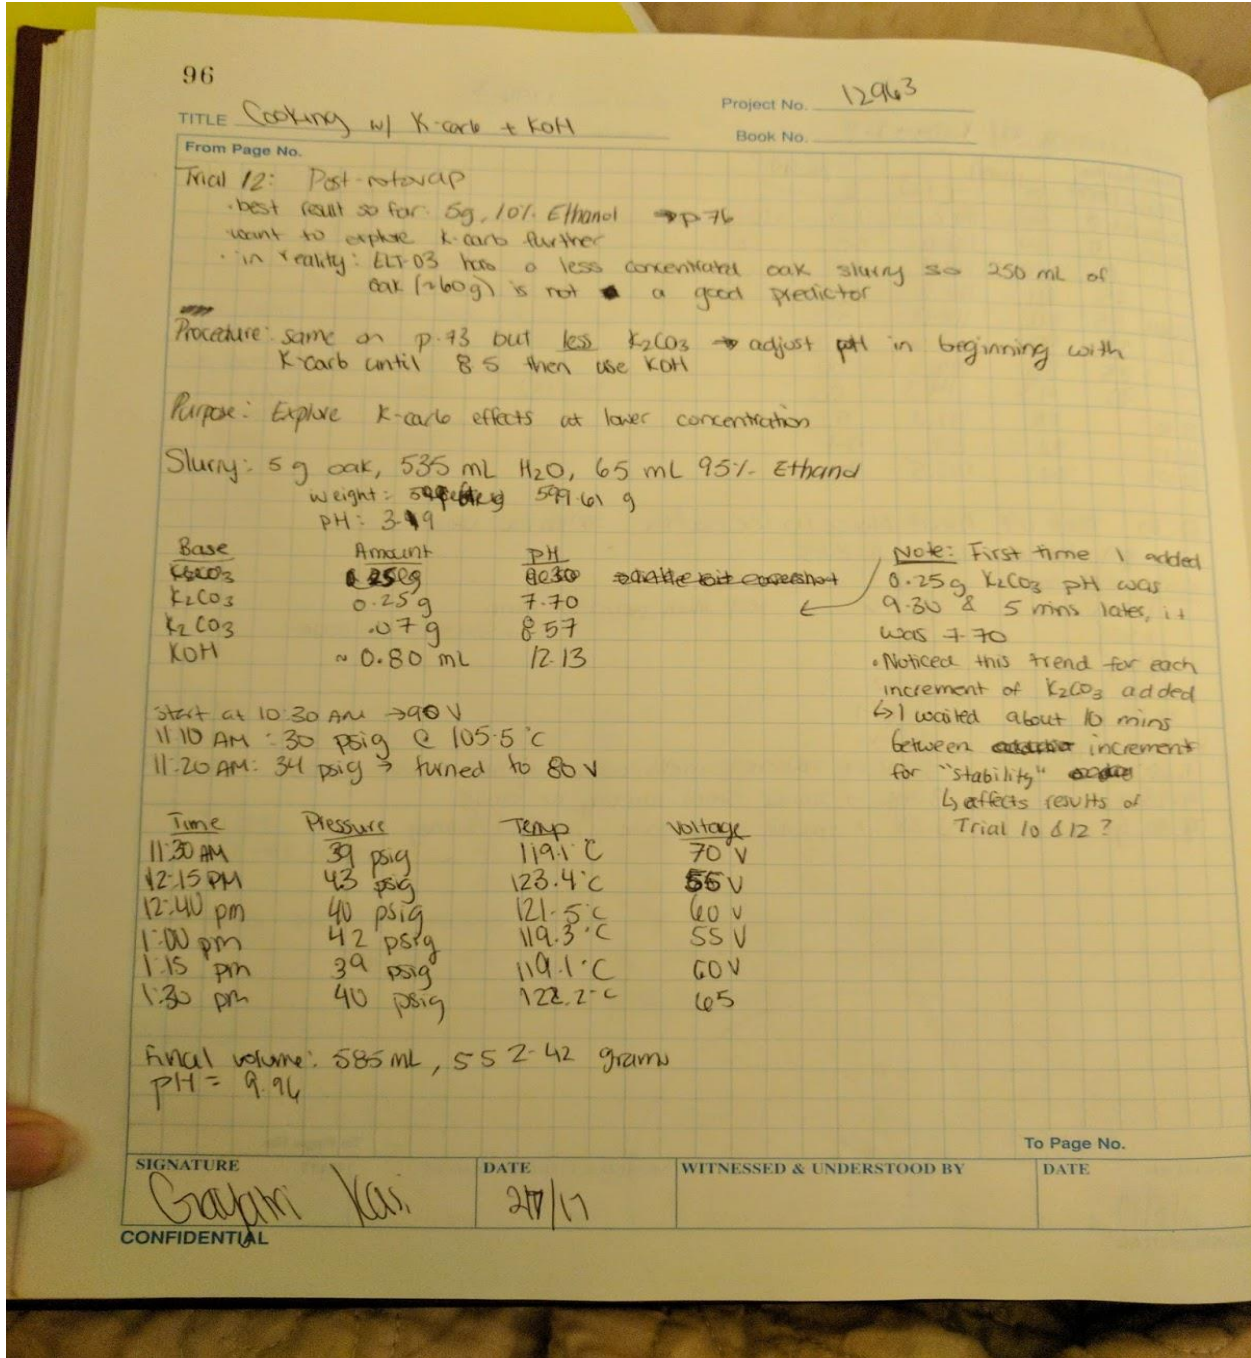 96
Project No. 12963
TITLE Cooking w/ K-carb + KOH
Book No.
From Page No.
Trial 12: Post-rotovap
· best result so far: 5g, 10% Ethanol → p.76
· want to explore K-carb further
· in reality: ELT-03 has a less concentrated oak slurry so 250 mL of
oak (~60g) is not a good predictor
Procedure: same on p.73 but less K2CO3 → adjust pH in beginning with
K-carb until 8.5 then use KOH
Purpose: Explore K-carb effects at lower concentration
Slurry: 5 g oak, 535 mL H2O, 65 mL 95% Ethanol
weight: 599.61 g
pH: 3.99
Base Amount pH
K2CO3 0.25g 9.30
K2CO3 0.25g 7.70
K2CO3 .07g 8.57
KOH ~ 0.80 mL 12.13
Note: First time I added
0.25g K2CO3 pH was
9.30 & 5 mins later, it
was 7.70
· Noticed this trend for each
increment of K2CO3 added
↳ I waited about 10 mins
between increment
for "stability"
↳ affects results of
Trial 10 & 12?
Start at 10:30 AM → 90 V
11:10 AM: 30 psig @ 105.5°C
11:20 AM: 34 psig → turned to 80 V
Time Pressure Temp Voltage
11:30 AM 39 psig 119.1°C 70 V
12:15 PM 43 psig 123.4°C 55 V
12:40 pm 40 psig 121.5°C 60 V
1:00 pm 42 psig 119.3°C 55 V
1:15 pm 39 psig 119.1°C 60V
1:30 pm 40 psig 122.2°C 65
Final volume: 585 mL, 552.42 grams
pH = 9.96
To Page No.
SIGNATURE DATE WITNESSED & UNDERSTOOD BY DATE
CONFIDENTIAL